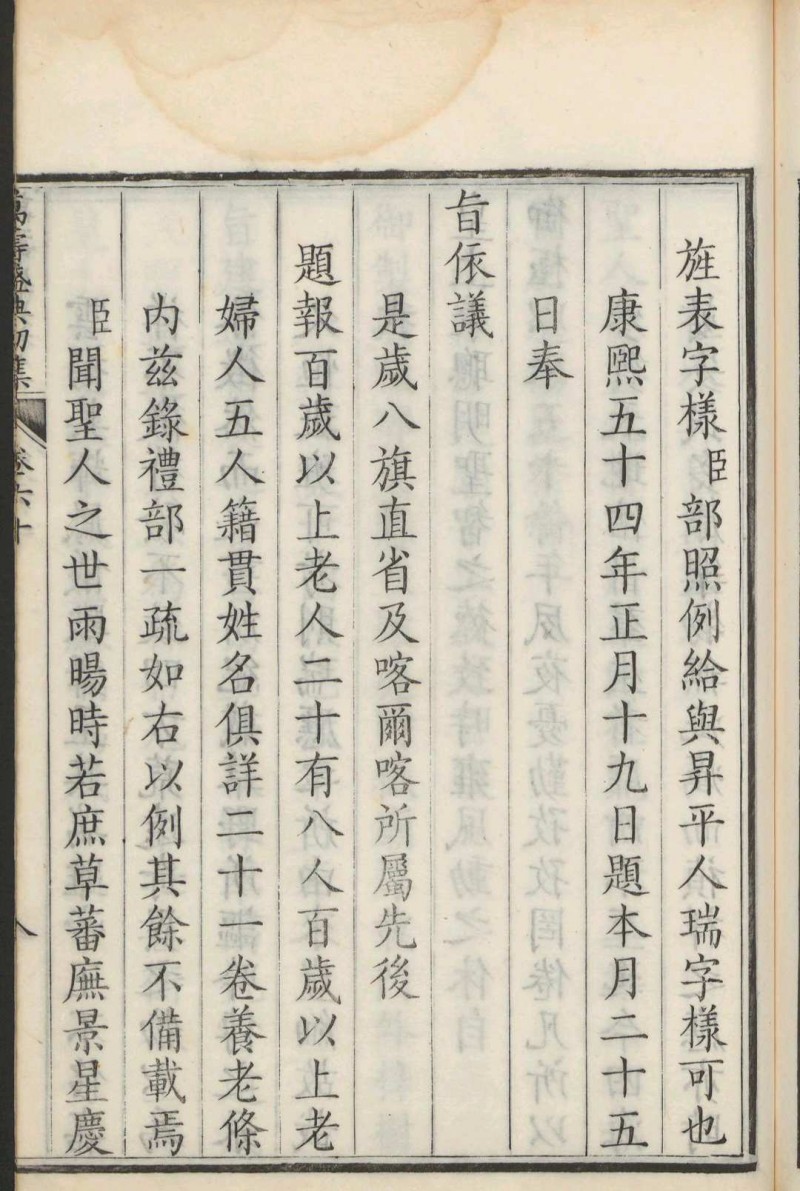 旌表字樣臣部照例給與昇平人瑞字樣可也
康熙五十四年正月十九日題本月二十五
日奉
旨依議
是歲八旗直省及喀爾喀所屬先後
題報百歲以上老人二十有八人百歲以上老
婦人五人籍貫姓名俱詳二十一卷養老條
内茲錄禮部一疏如右以例其餘不備載焉
臣聞聖人之世雨暘時若庶草蕃廡景星慶
萬壽盛典初集 卷六十 八